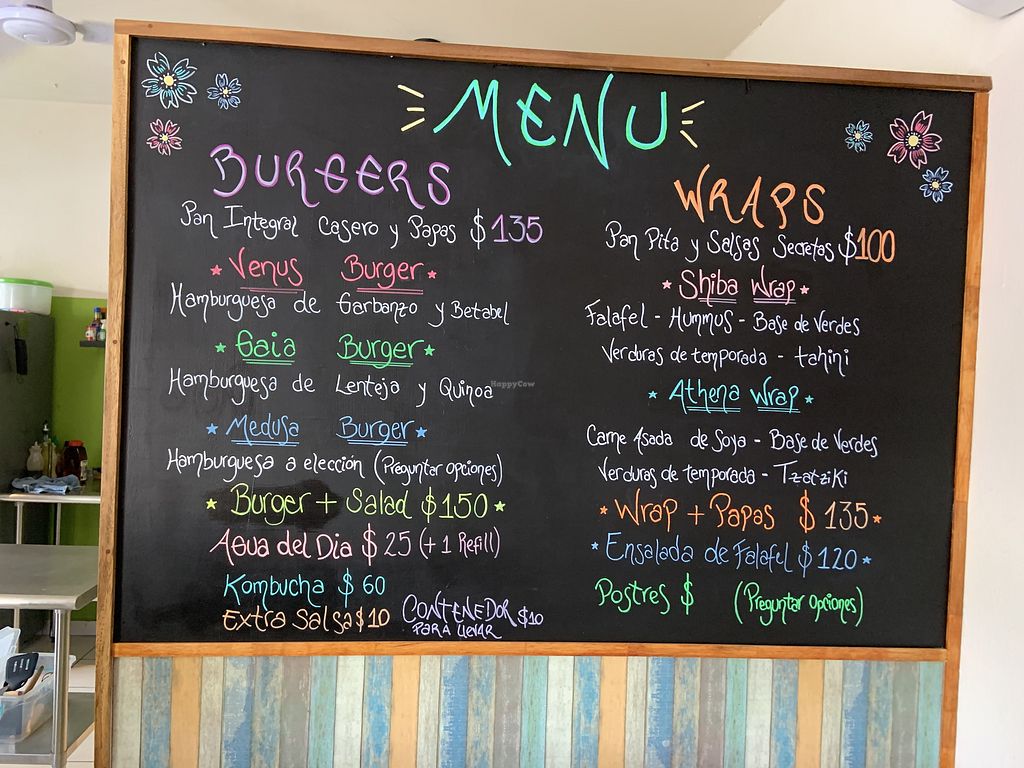 MENU
BURGERS
Pan Integral Casero y Papas $135
Venus Burger
Hamburguesa de Garbanzo y Betabel
Gaia Burger
Hamburguesa de Lenteja y Quinoa
Medusa Burger
Hamburguesa a elección (Preguntar opciones)
Burger + Salad $150
Agua del Dia $25 (+1 Refill)
Kombucha $60
Extra Salsa $10
CONTENEDOR PARA LLEVAR $10
WRAPS
Pan Pita y Salsas Secretas $100
Shiba Wrap
Falafel - Hummus - Base de Verdes
Verduras de temporada - tahini
Athena Wrap
Carne Asada de Soya - Base de Verdes
Verduras de temporada - Tzatziki
Wrap + Papas $135
Ensalada de Falafel $120
Postres $ (Preguntar opciones)
HappyCow